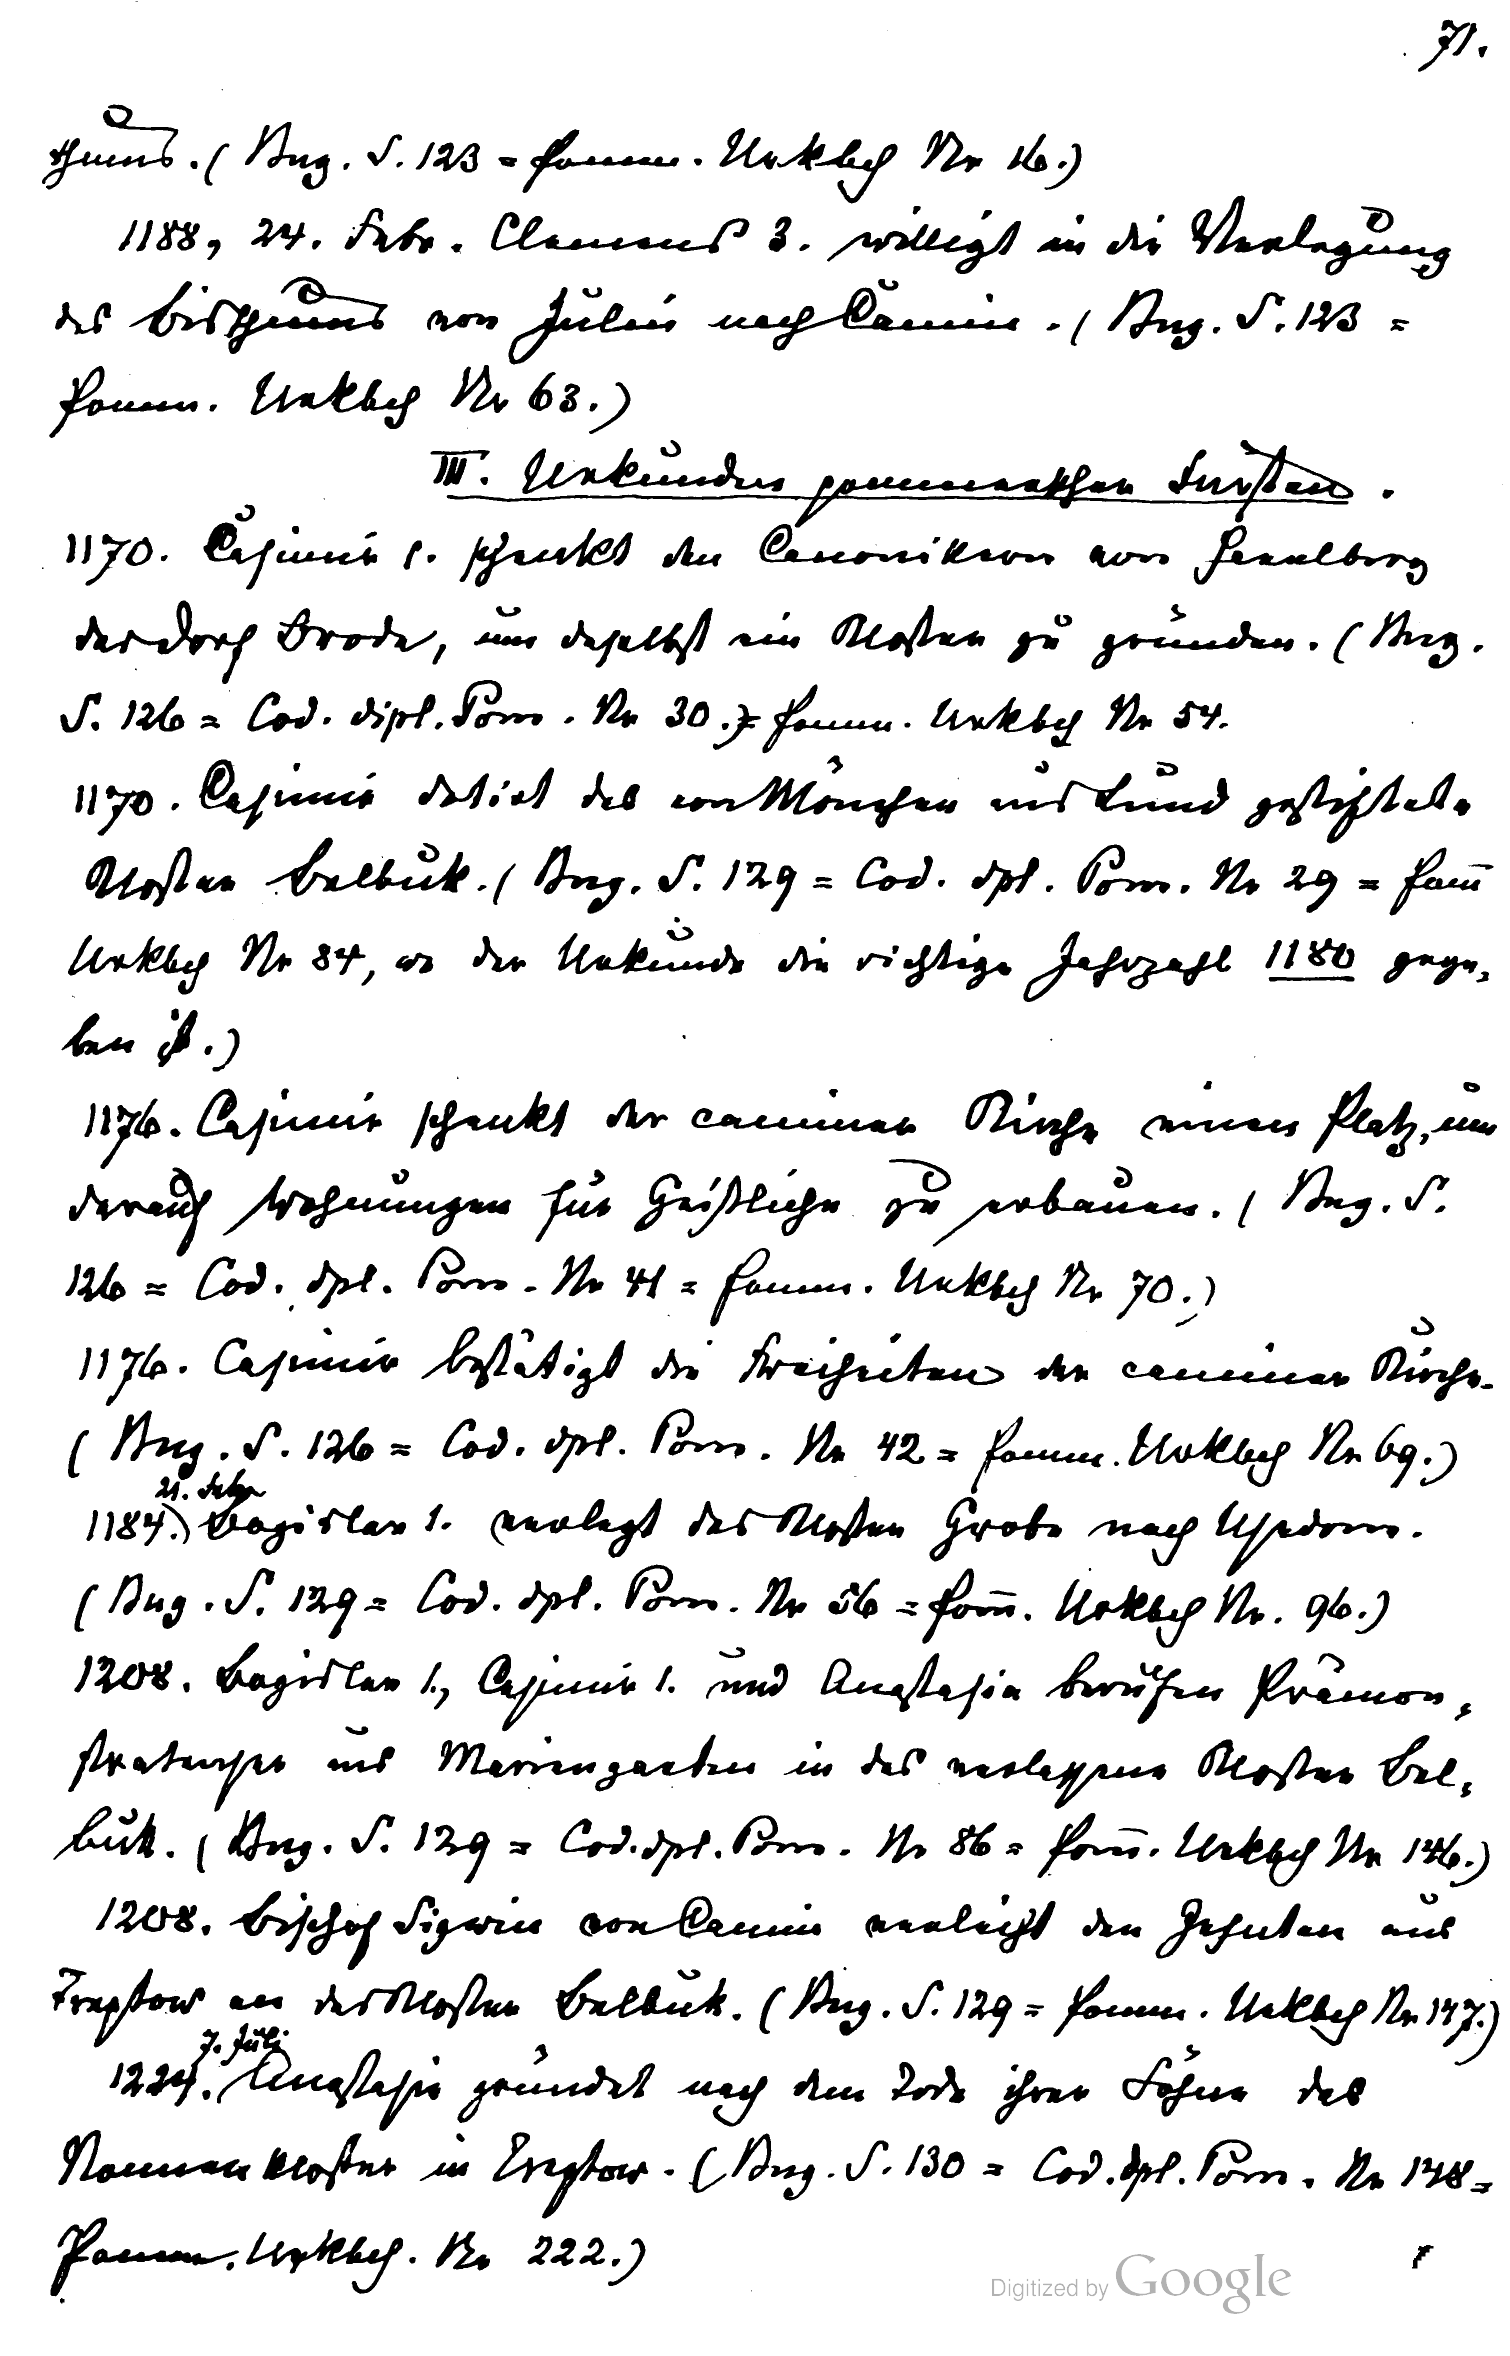 71.
thums. (Bug. S. 123 = Pomm. Urkbch Nr 16.)
1188, 24. Febr. Clemens 3. willigt in die Verlegung
des Bisthums von Julin nach Camin. (Bug. S. 123 =
Pomm. Urkbch Nr 63.)
III. Urkunden pommerscher Fürsten.
1170. Casimir 1. schenkt den Canonikern von Havelberg
das Dorf Brode, um daselbst ein Kloster zu gründen. (Bug.
S. 126 = Cod. dipl. Pom. Nr 30.) = Pomm. Urkbch Nr 54.
1170. Casimir dotirt das von Mönchen aus Lund gestiftete
Kloster Belbuk. (Bug. S. 129 = Cod. dpl. Pom. Nr 29 = Pom̅
Urkbch Nr 84, wo der Urkunde die richtige Jahrzahl 1180 gege-
ben ist.)
1176. Casimir schenkt der caminer Kirche einen Platz, um
darauf Wohnungen für Geistliche zu erbauen. (Bug. S.
126 = Cod. dpl. Pom. Nr 41 = Pomm. Urkbch Nr 70.)
1176. Casimir bestätigt die Freiheiten der caminer Kirche.
(Bug. S. 126 = Cod. dpl. Pom. Nr 42 = Pomm. Urkbch Nr 69.)
21. Febr
1184.) Bogislav 1. verlegt das Kloster Grobe nach Usedom.
(Bug. S. 129 = Cod. dpl. Pom. Nr 56 = Pom̅. Urkbch Nr. 96.)
1208. Bogislav 1., Casimir 1. und Anastasia berufen Prämon-
stratenser aus Mariengarten in das verlassene Kloster Bel-
buk. (Bug. S. 129 = Cod. dpl. Pom. Nr 86 = Pom̅. Urkbch Nr 146.)
1208. Bischof Sigwin von Camin verleiht den Zehnten aus
Treptow an das Kloster Belbuk. (Bug. S. 129 = Pomm. Urkbch Nr 147.)
7. Juli
1224. Anastasia gründet nach dem Tode ihrer Söhne das
Nonnenkloster in Treptow. (Bug. S. 130 = Cod. dpl. Pom. Nr 148 =
Pomm. Urkbch. Nr 222.)
Digitized by Google